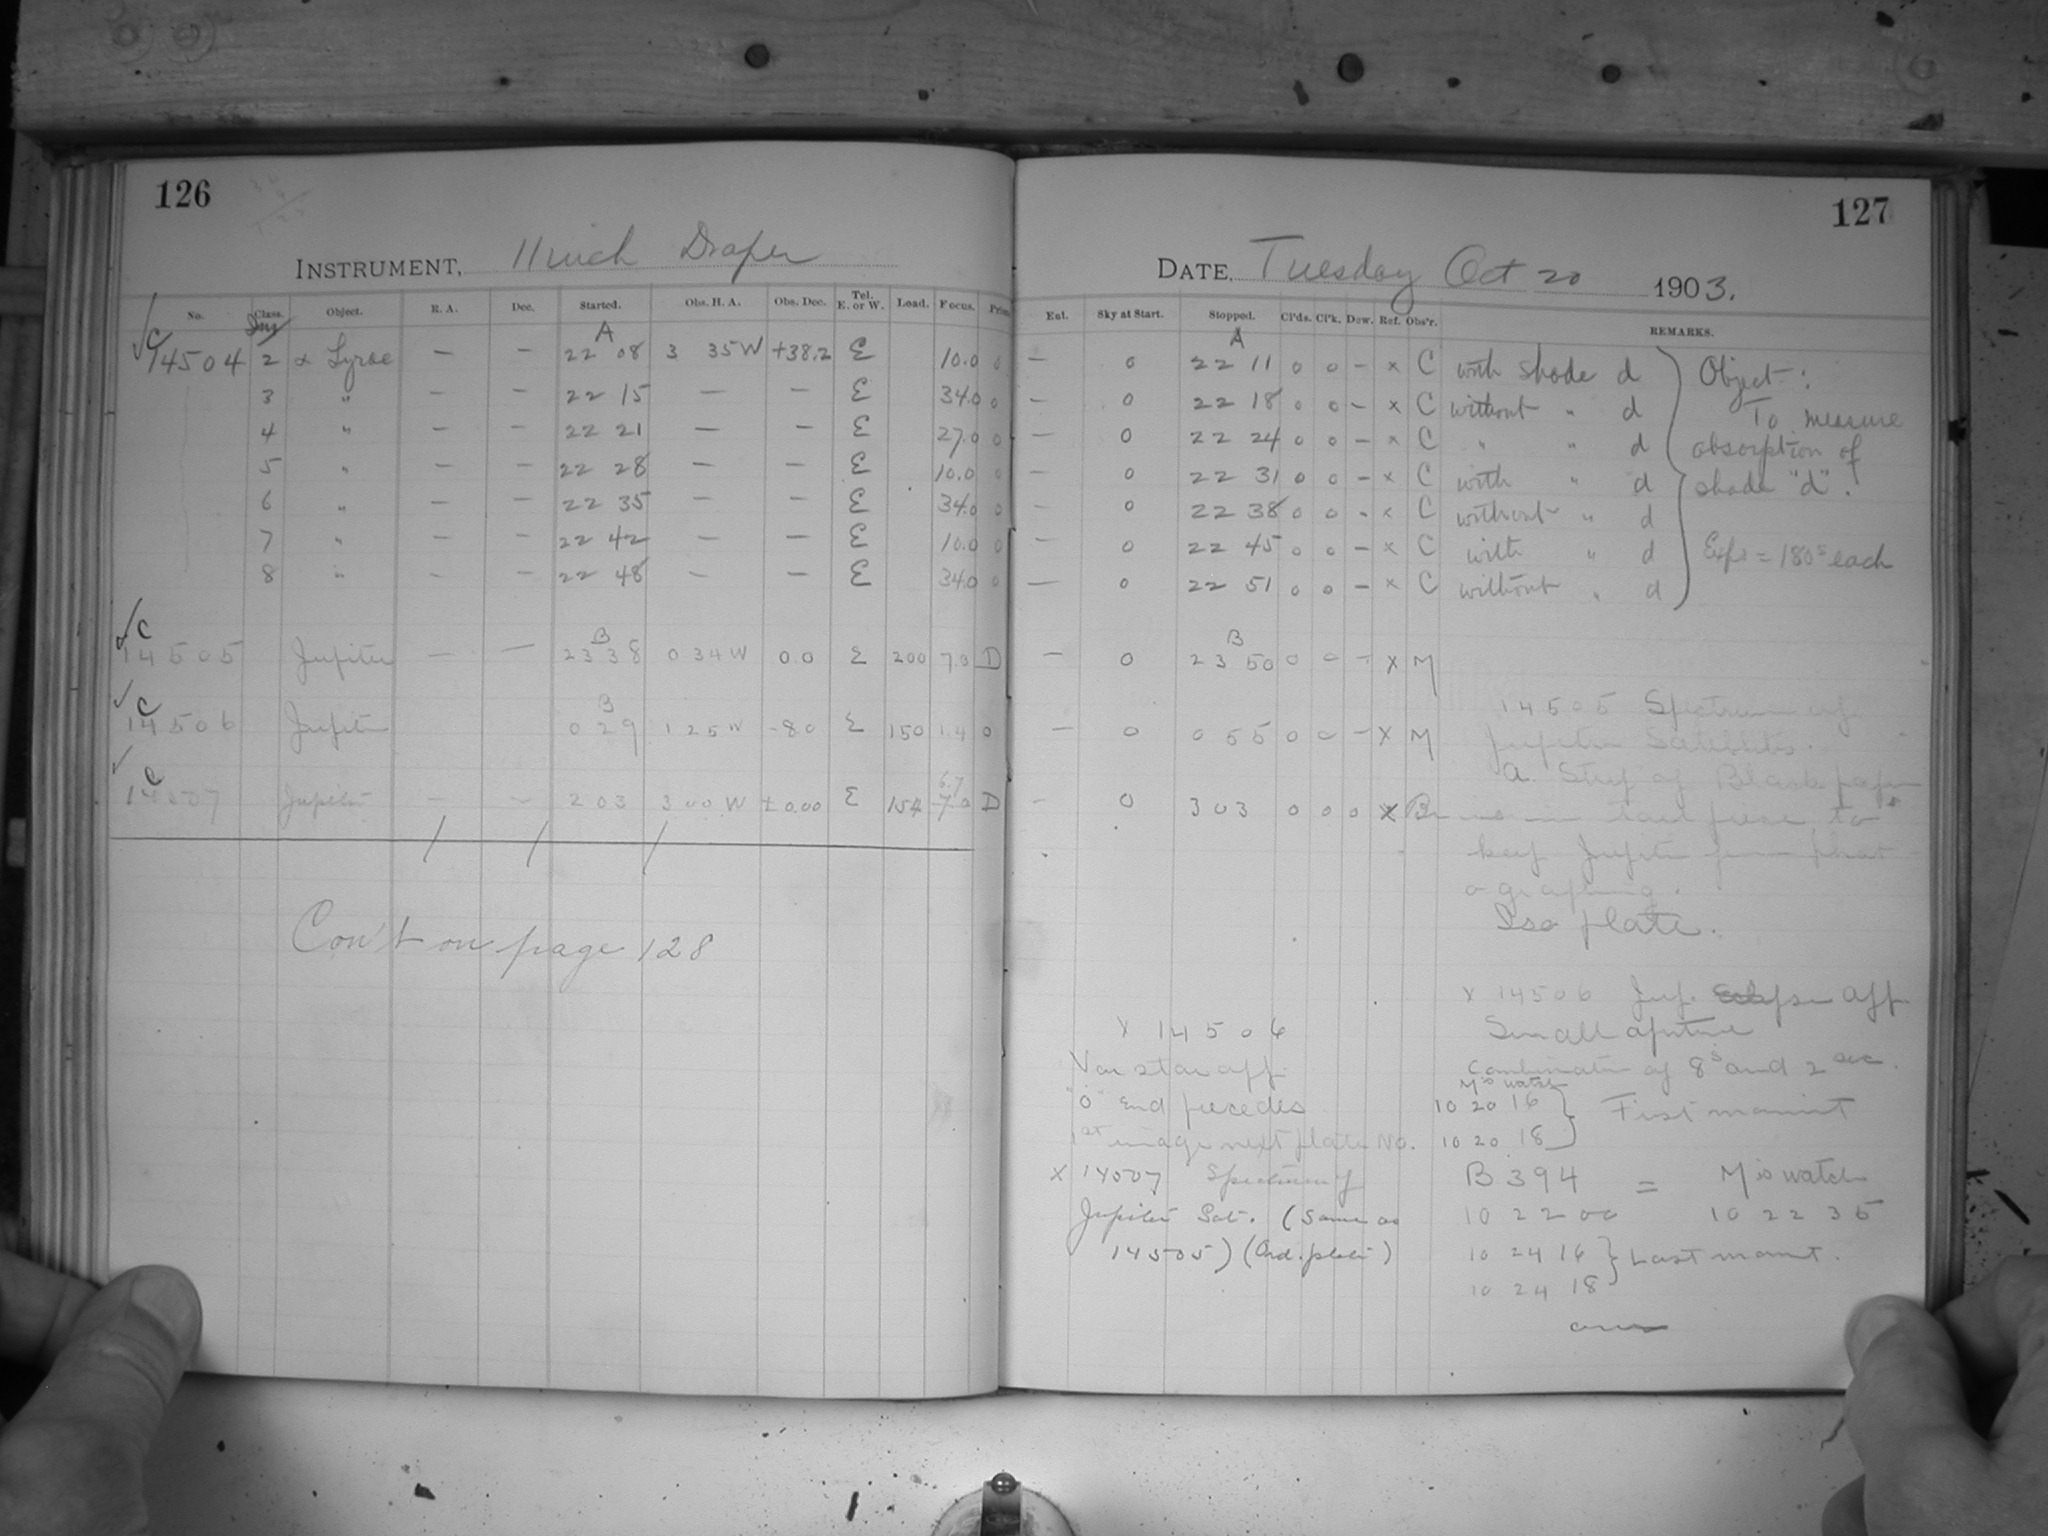 126
INSTRUMENT, 11 inch Draper
No. Class. Object. R. A. Dec. Started. Obs. H. A. Obs. Dec. Tel. E. or W. Load. Focus. Prism
C Ims A
14504 2 α Lyrae — — 22 08 3 35W +38.2 E 10.0 0
3 " — — 22 15 — — E 34.0 0
4 " — — 22 21 — — E 27.0 0
5 " — — 22 28 — — E 10.0 0
6 " — — 22 35 — — E 34.0 0
7 " — — 22 42 — — E 10.0 0
8 " — — 22 48 — — E 34.0 0
C B
14505 Jupiter — — 23 38 0 34W 0.0 E 200 7.0 D
C B
14506 Jupiter 0 29 1 25W -8.0 E 150 1.4 0
C 6.7
14507 Jupiter — — 2 03 3 00 W ±0.00 E 154 7.0 D
Con't on page 128
127
DATE, Tuesday Oct 20 1903.
Eat. Sky at Start. Stopped. Cl'ds. Cl'k. Dew. Ref. Obs'r. REMARKS.
A
— 0 22 11 0 0 — x C with shade d Object:
— 0 22 18 0 0 — x C without " d To measure
— 0 22 24 0 0 — x C " " d absorption of
— 0 22 31 0 0 — x C with " d shade "d".
— 0 22 38 0 0 - x C without " d
— 0 22 45 0 0 — x C with " d Exps = 180s each
— 0 22 51 0 0 — x C without " d
B
— 0 23 50 0 0 — x M
14505 Spectrum of
— 0 0 55 0 0 — x M Jupiter Satellites.
A Strip of Black paper
— 0 3 03 0 0 0 x Br was in tail piece to
keep Jupiter from phot-
ographing.
Iso plate.
x 14506 Jup. Eclipse app.
Small aperture
Combination of 8s and 2 sec.
M's watch
10 20 16 } First mount
10 20 18
B 394 = M's watch
10 22 00 10 22 35
10 24 16 } Last mount.
10 24 18
x 14506
Var star app.
"O" End precedes
1st image next plate No.
x 14507 Spectrum of
Jupiter Sat. (Same as
14505) (Ord. plate)